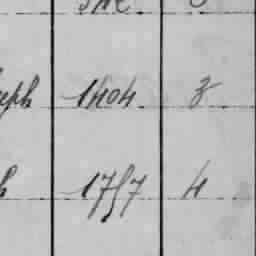 eph 1404 3
h 1757 4